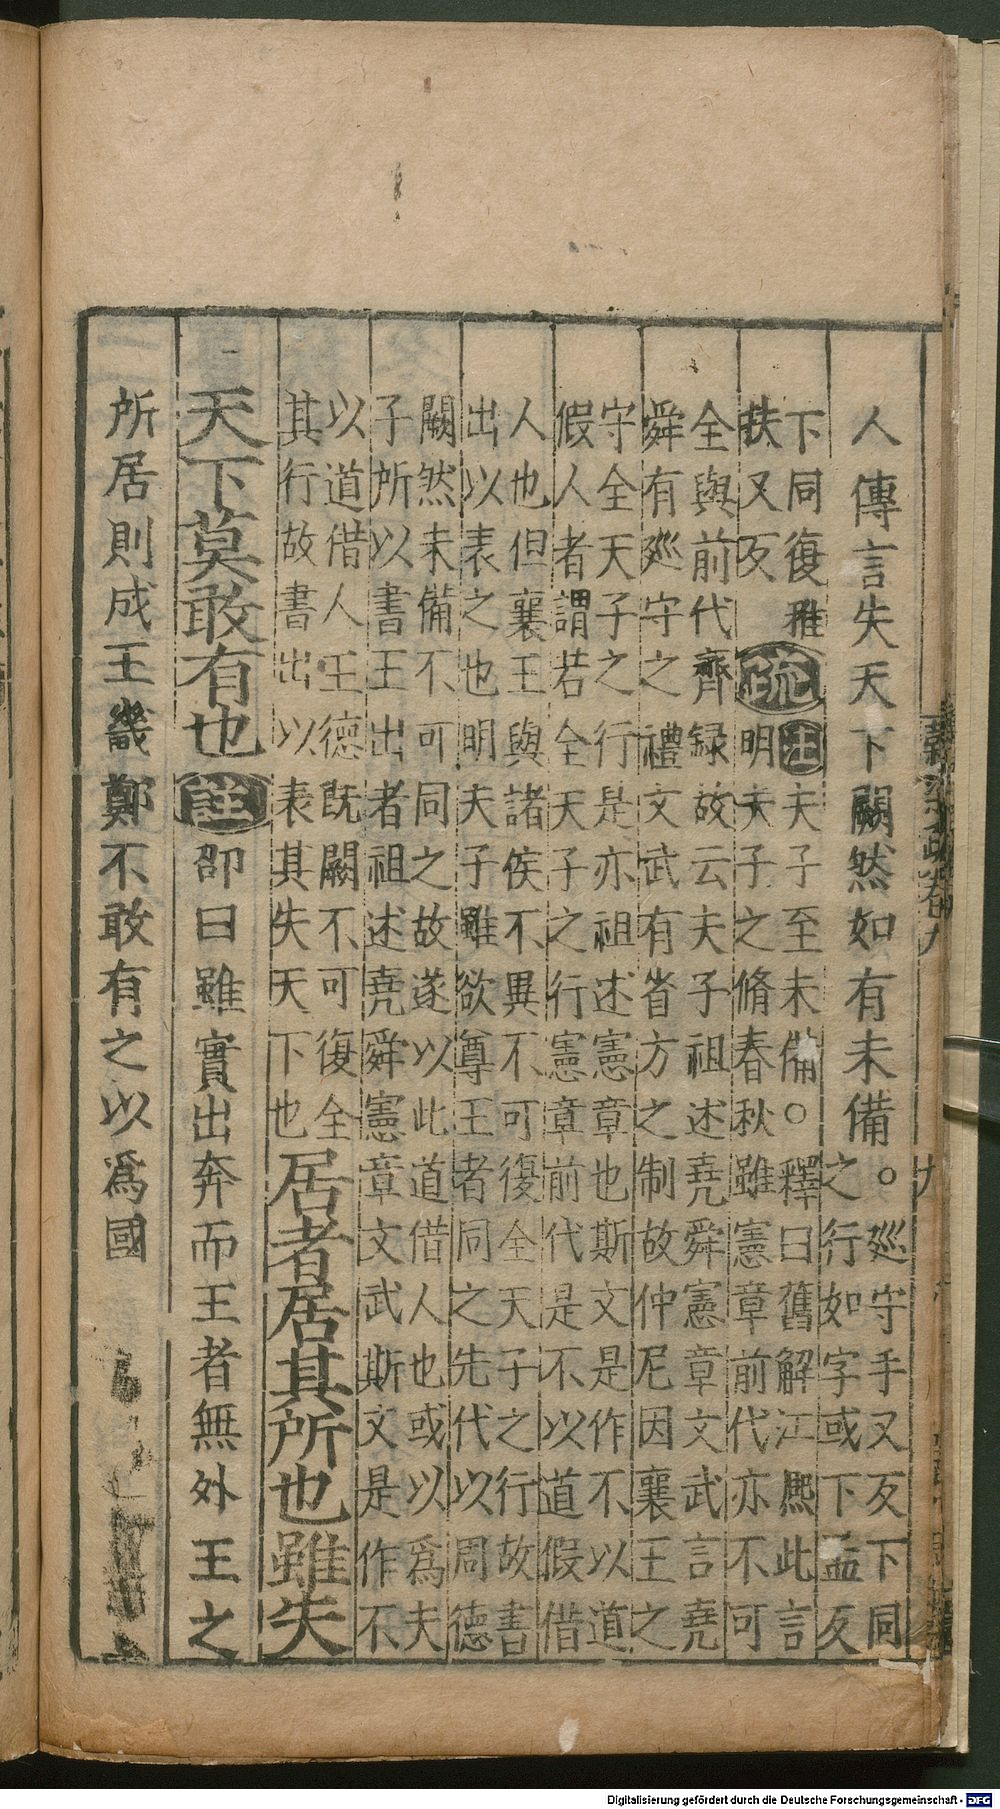 人傳言失天下闕然如有未備。巡守手又反下同
之行如字或下孟反
下同復雅
扶又反疏注夫子至未備○釋曰舊解江熙此言
明夫子之脩春秋雖憲章前代亦不可
全與前代齊録故云夫子祖述堯舜憲章文武言堯
舜有巡守之禮文武有省方之制故仲尼因襄王之
守全天子之行是亦祖述憲章也斯文是作不以道
假人者謂若全天子之行憲章前代是不以道假借
人也但襄王與諸侯不異不可復全天子之行故書
出以表之也明夫子雖欲尊王者同之先代以周德
闕然未備不可同之故遂以此道借人也或以爲夫
子所以書王出者祖述堯舜憲章文武斯文是作不
以道借人王德既闕不可復全
其行故書出以表其失天下也
居者居其所也雖失
天下莫敢有也註卲曰雖實出奔而王者無外王之
所居則成王畿鄭不敢有之以爲國
穀梁疏卷九
九
Digitalisierung gefördert durch die Deutsche Forschungsgemeinschaft - DFG